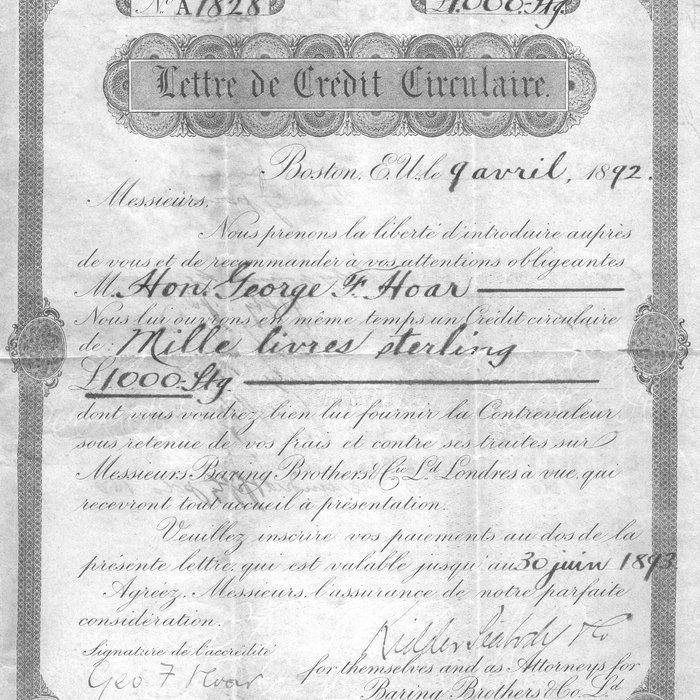 No. A1828 £1,000 Stg.
Lettre de Crédit Circulaire.
Boston, E.U. le 9 avril, 1892.
Messieurs,
Nous prenons la liberté d'introduire auprès
de vous et de recommander à vos attentions obligeantes
M. Hon. George F. Hoar
Nous lui ouvrons en même temps un Crédit circulaire
de: Mille livres sterling
£1000 Stg.
dont vous voudrez bien lui fournir la Contrevaleur
sous retenue de vos frais et contre ses traites sur
Messieurs Baring Brothers & Cie. Ld. Londres à vue, qui
recevront tout accueil à présentation.
Veuillez inscrire vos paiements au dos de la
présente lettre, qui est valable jusqu'au 30 juin 1893.
Agréez, Messieurs, l'assurance de notre parfaite
considération.
Kidder Peabody & Co
Signature de l'accrédité
Geo F Hoar
for themselves and as Attorneys for
Baring Brothers & Co. Ld.